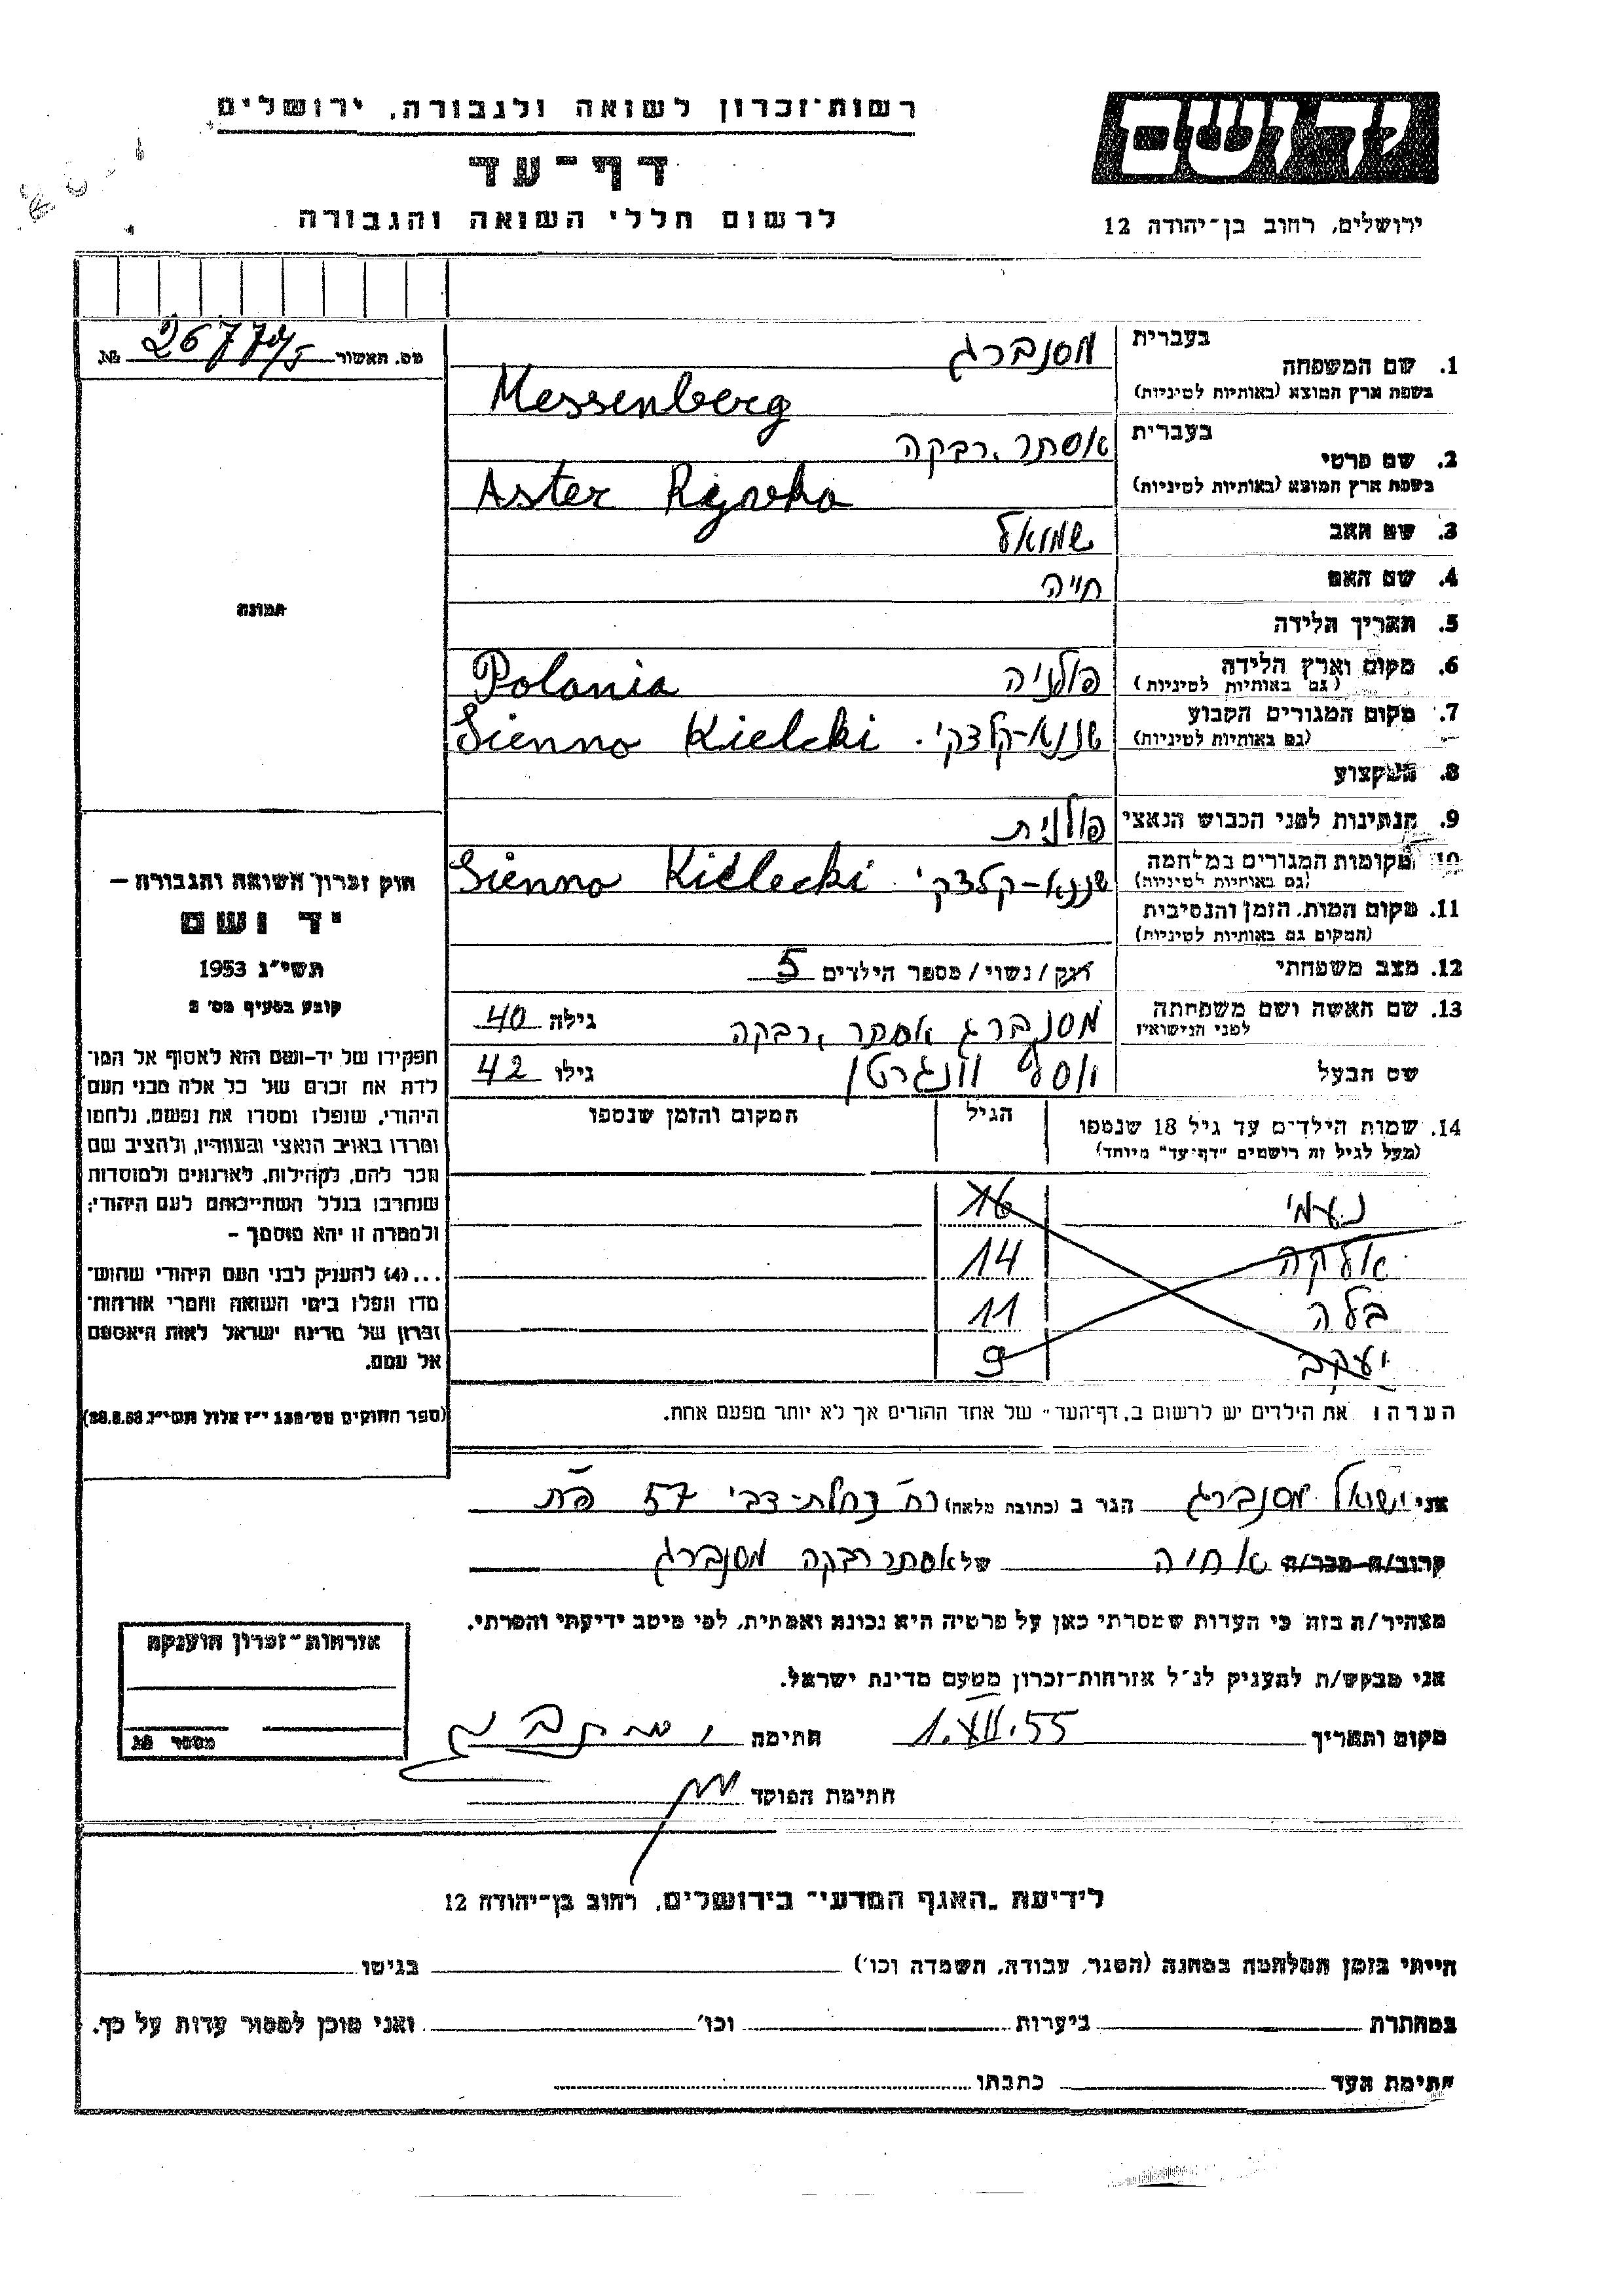 רשות־זכרון לשואה ולגבורה, ירושלים
דף־עד
לרשום חללי השואה והגבורה
יד ושם
ירושלים, רחוב בן־יהודה 12
מס. האשור 26774/5 №
1. שם המשפחה
בעברית מסנברג
בשפת ארץ המוצא (באותיות לטיניות) Messenberg
2. שם פרטי
בעברית אסתר, רבקה
בשפת ארץ המוצא (באותיות לטיניות) Aster
3. שם האב שמואל
4. שם האם חייה
5. תאריך הלידה
6. מקום וארץ הלידה
(גם באותיות לטיניות) פולניה Polania
7. מקום המגורים הקבוע
(גם באותיות לטיניות) שננא-קלצקי. Sienno Kielcki
8. המקצוע
9. הנתינות לפני הכבוש הנאצי פולנית
10. מקומות המגורים במלחמה
(גם באותיות לטיניות) שננא-קלצקי. Sienno Kielecki
11. מקום המות, הזמן והנסיבות
(המקום גם באותיות לטיניות)
12. מצב משפחתי רוק/נשוי/מספר הילדים 5
13. שם האשה ושם משפחתה
לפני הנישואין מסנברג אסתר, רבקה גילה 40
שם הבעל יוסף וונגרטן גילו 42
14. שמות הילדים עד גיל 18 שנספו
(מעל לגיל זה רושמים "דף־עד" מיוחד)
הגיל
המקום והזמן שנספו
נעמי 16
אלקה 14
בלה 11
יעקב 9
הערה: את הילדים יש לרשום ב„דף־העד" של אחד ההורים אך לא יותר מפעם אחת.
תמונה
חוק זכרון השואה והגבורה –
יד ושם
תשי"ג 1953
קובע בסעיף מס' 2
תפקידו של יד-ושם הוא לאסוף אל המו־
לדת את זכרם של כל אלה מבני העם
היהודי, שנפלו ומסרו את נפשם, נלחמו
ומרדו באויב הנאצי ובעוזריו, ולהציב שם
וזכר להם, לקהילות, לארגונים ולמוסדות
שנחרבו בגלל השתייכותם לעם היהודי;
ולמטרה זו יהא מוסמך –
...(4) להעניק לבני העם היהודי שהוש־
מדו ונפלו בימי השואה והמרי אזרחות־
זכרון של מדינת ישראל לאות היאספם
אל עמם.
(ספר החוקים מס' 132 י"ז אלול תשי"ג 28.8.53)
אני ישראל מסנברג הגר ב (כתובת מלאה) רח' נחלת-צבי 57 פ"ת
קרוב/ה מכר/ה אחיה של אסתר רבקה מסנברג
מצהיר/ה בזה כי העדות שמסרתי כאן על פרטיה היא נכונה ואמתית, לפי מיטב ידיעתי והכרתי.
אני מבקש/ת להעניק לנ"ל אזרחות־זכרון מטעם מדינת ישראל.
מקום ותאריך 1.XII.55 חתימה
חתימת הפוקד
אזרחות־זכרון הוענקה
מספר №
לידיעת „האגף המדעי" בירושלים, רחוב בן־יהודה 12
הייתי בזמן המלחמה במחנה (הסגר, עבודה, השמדה וכו') בגיטו
במחתרת ביערות וכו' ואני מוכן למסור עדות על כך.
חתימת העד כתבתו